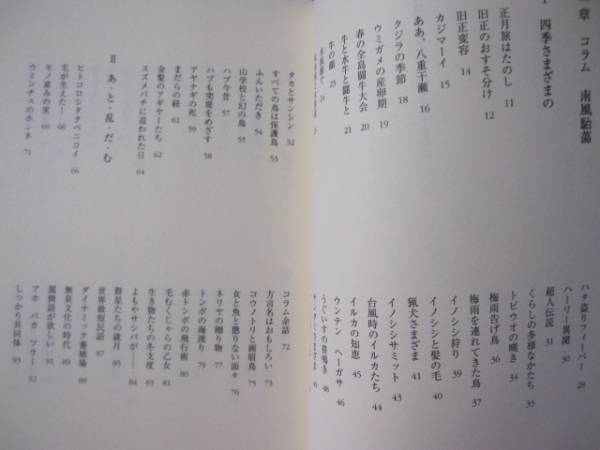 章 コラム 南風駘蕩
四季さまざまの
正月旅はたのし 11
旧正のおすそ分け 12
旧正変容 14
カジマーイ 15
ああ、八重干瀬 16
クジラの季節 18
ウミガメの産卵期 19
春の全島闘牛大会 20
牛と水牛と闘牛と 21
牛の眼 25
ハタ造りフィーバー 28
ハーリー異聞 30
超人伝説 31
くらしの多様なかたち 33
トビウオの嘆き 34
梅雨告げ鳥 36
梅雨を連れてきた鳥 37
イノシシ狩り 39
イノシシと髪の毛 40
猟犬さまざま 41
イノシシサミット 43
台風時のイルカたち 44
イルカの知恵 45
ウンテン ヘーガサ 46
うぐいすの笹鳴き 48
タカとサンシン 52
すべての鳥は保護鳥 53
ふんいただき 54
山学校と幻の鳥 55
ハブ今昔 57
ハブも突進をめざす 58
アヤナギの死 59
まだらの紐 61
金髪のアギヤーたち 62
スズメバチに追われた日 64
Ⅱ あ・と・乱・だ・む
ヒトコロシタタベニコイ 66
毛が生えた! 68
モノ産みの実 69
ウミンチュのホンネ 71
コラム余話 72
方言名はおもしろい 73
コウノトリと両眉鳥 75
女と魚と懲りない面々 76
ネリヤの贈り物 77
トンボの海渡り 79
赤トンボの飛行術 80
毛むくじゃらの乙女 81
生き物たちの冬支度 83
よもやサシバが…… 84
群星たちの歳月 85
世界最短民話 87
ダイナミック養殖場 88
無臭文化の時代 89
罵倒語が欲しい 91
アホ バカ フラー 92
しっかり共同体 93